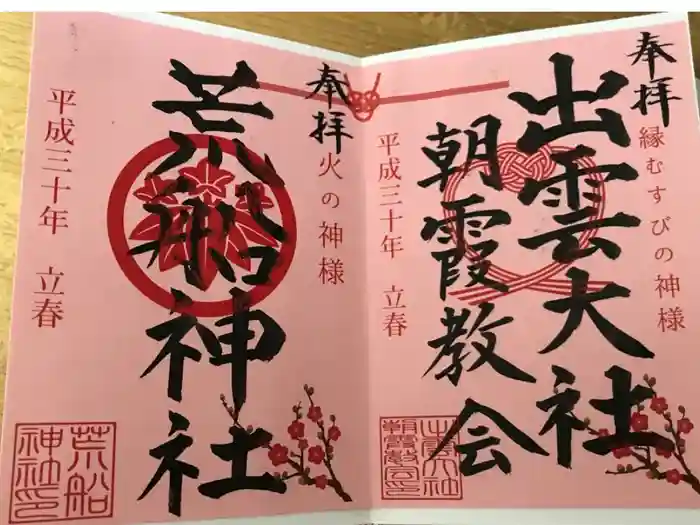 奉拝
縁むすびの神様
出雲大社
朝霞教会
平成三十年 立春
出雲大社
朝霞教会印
奉拝
火の神様
荒船神社
平成三十年 立春
荒船
神社印